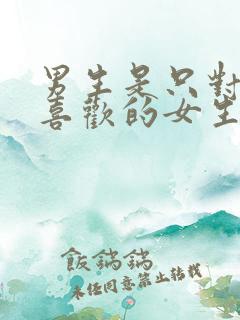 男生是只對
喜歡的女生
飯鍋鍋
未經同意禁止轉載